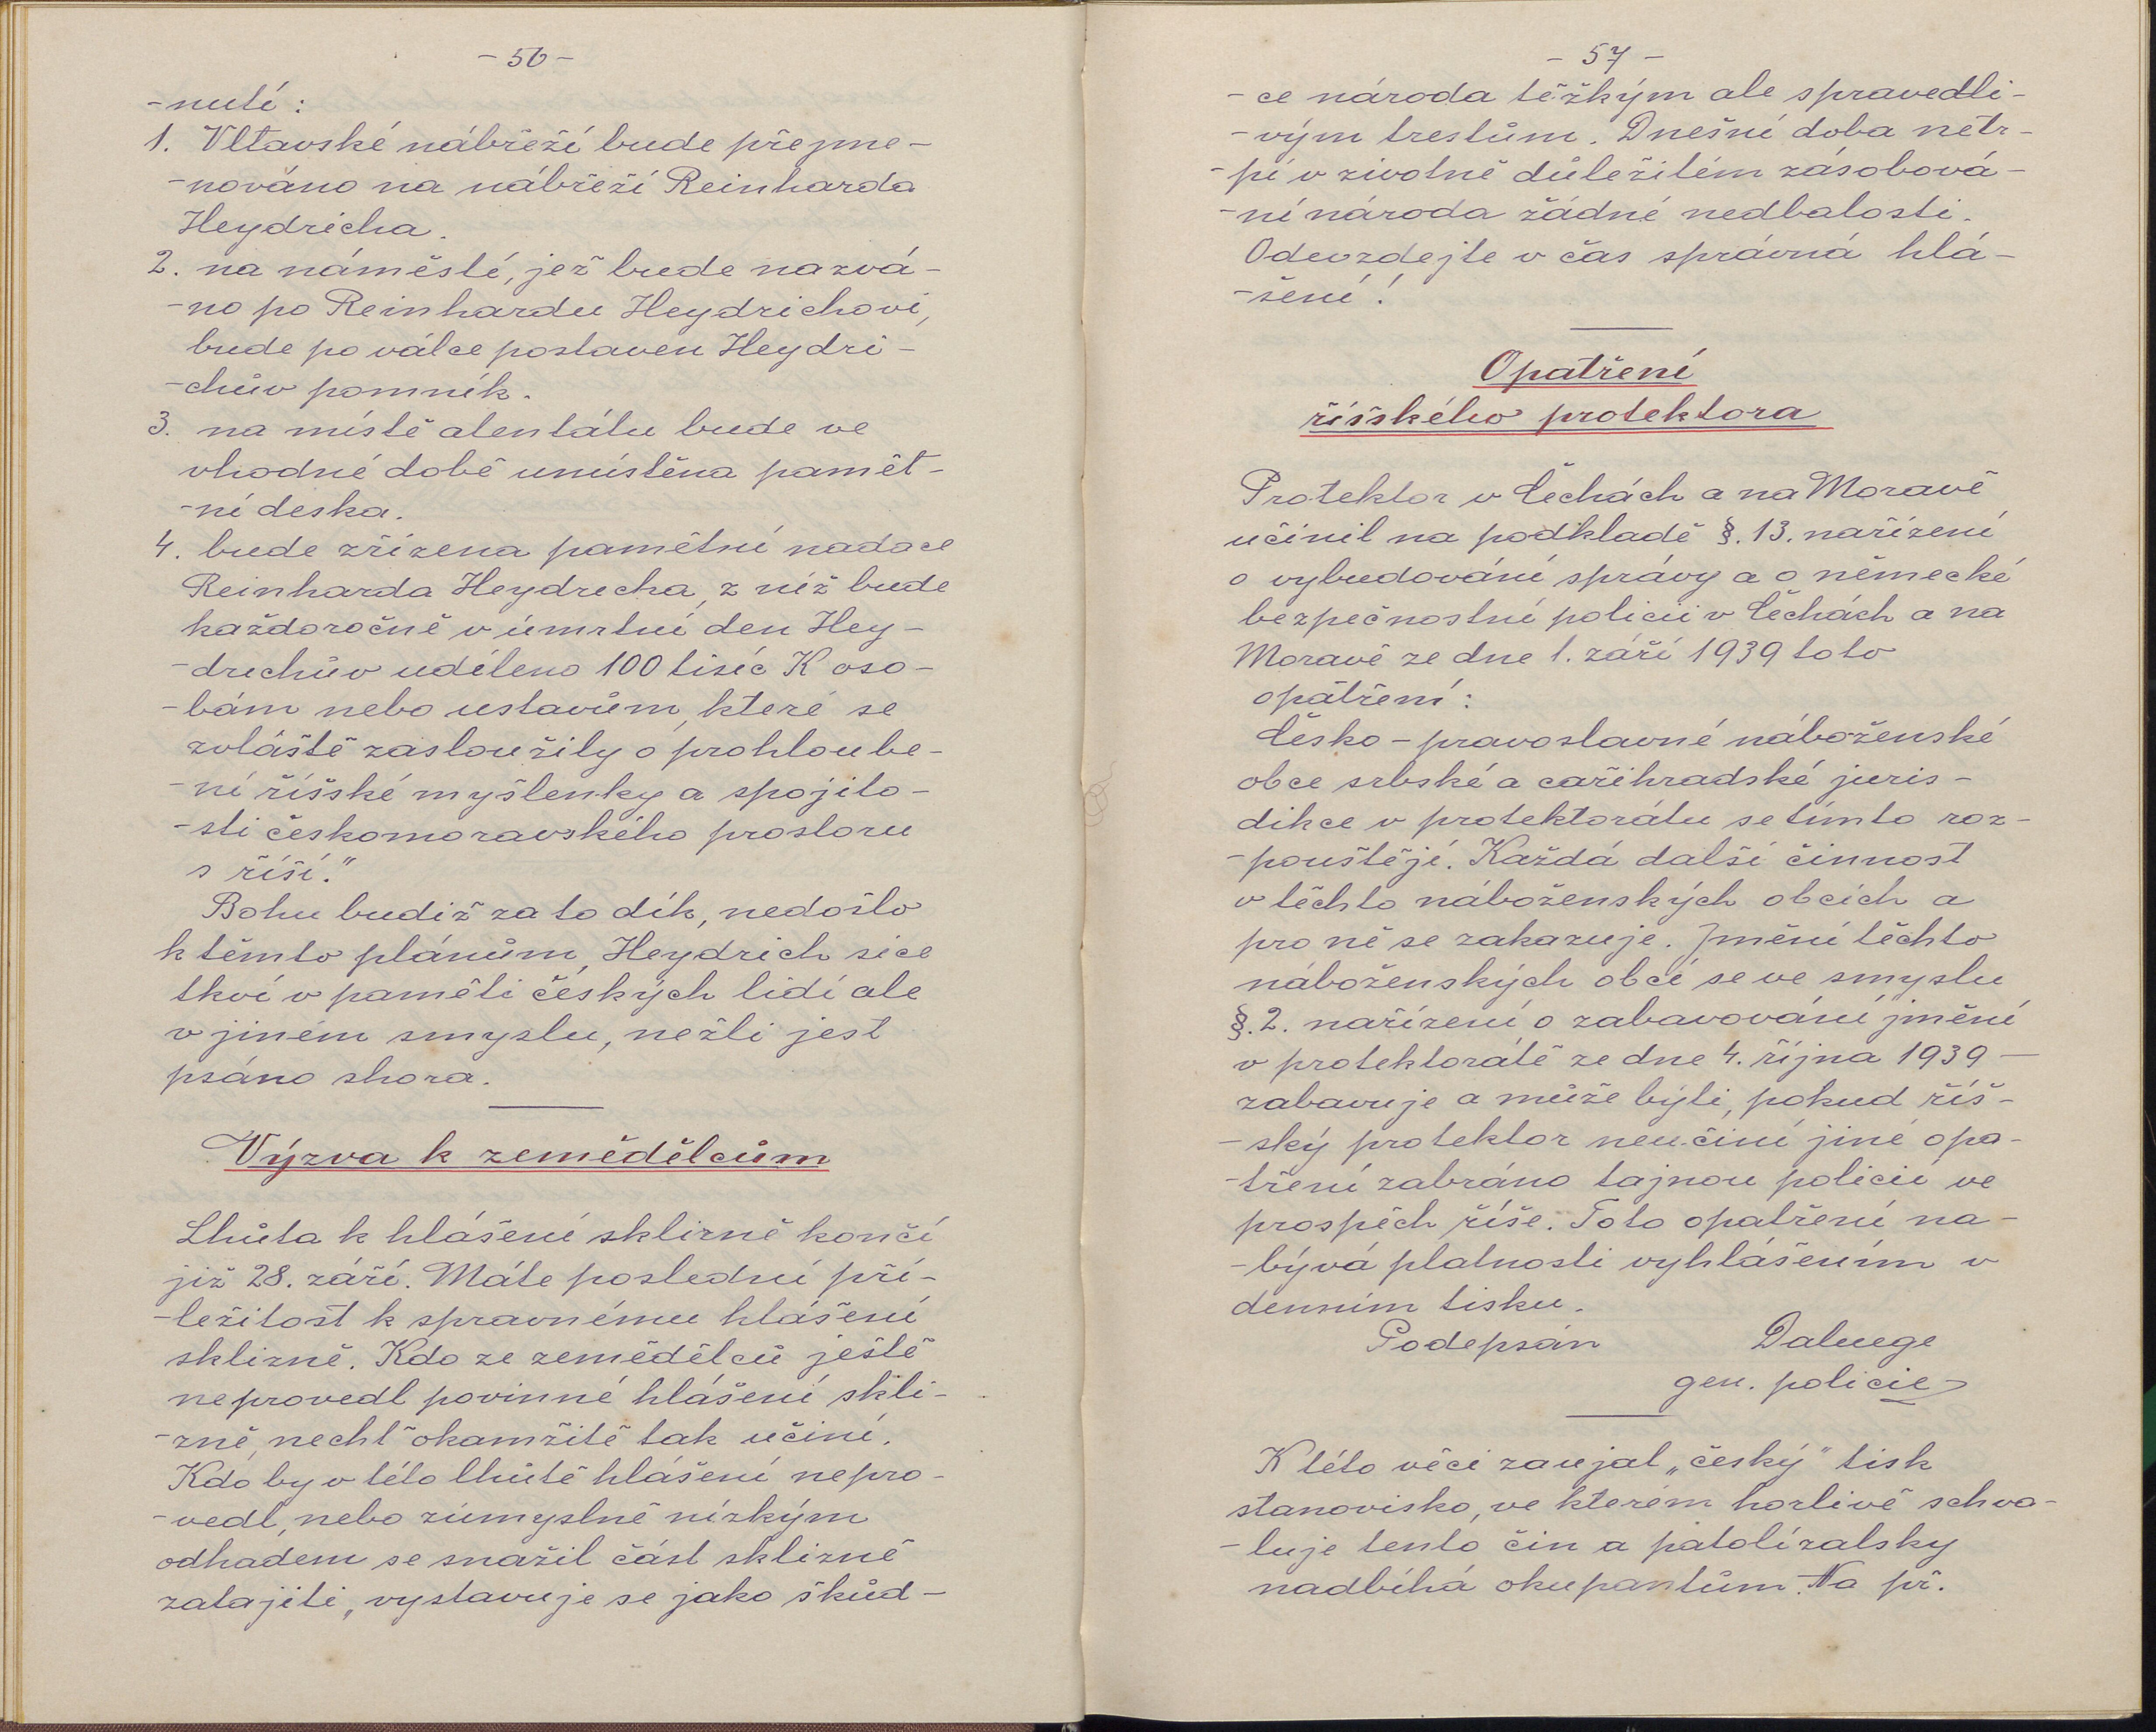 - 56 -
-nutí:
1. Vltavské nábřeží bude přejme-
-nováno na nábřeží Reinharda
Heydricha.
2. na náměstí, jež bude nazvá-
-no po Reinhardu Heydrichovi,
bude po válce postaven Heydri-
-chův pomník.
3. na místě atentátu bude ve
vhodné době umístěna pamět-
-ní deska.
4. bude zřízena pamětní nadace
Reinharda Heydricha, z níž bude
každoročně v úmrtní den Hey-
-drichův uděleno 100 tisíc K oso-
-bám nebo ustavům, které se
zvláště zasloužily o prohloube-
-ní říšské myšlenky a spojito-
-sti českomoravského prostoru
s říší."
Bohu budiž za to dík, nedošlo
k těmto plánům, Heydrich sice
tkví v paměti českých lidí ale
v jiném smyslu, nežli jest
psáno shora.
Výzva k zemědělcům
Lhůta k hlášení sklizně končí
již 28. září. Máte poslední pří-
-ležitost k spravnému hlášení
sklizně. Kdo ze zemědělců ještě
neprovedl povinné hlášení skli-
-zně, nechť okamžitě tak učiní.
Kdo by v této lhůtě hlášení nepro-
-vedl, nebo zúmyslně nízkým
odhadem se snažil část sklizně
zatajiti, vystavuje se jako škůd-
- 57 -
-ce národa těžkým ale spravedli-
-vým trestům. Dnešní doba netr-
-pí v životně důležitém zásobová-
-ní národa žádné nedbalosti.
Odevzdejte v čas správná hlá-
-šení!
Opatření
říšského protektora
Protektor v Čechách a na Moravě
učinil na podkladě §. 13. nařízení
o vybudování správy a o německé
bezpečnostní policii v Čechách a na
Moravě ze dne 1. září 1939 toto
opatření:
Česko-pravoslavné náboženské
obce srbské a cařihradské juris-
dikce v protektorátu se tímto roz-
-pouštějí. Každá další činnost
v těchto náboženských obcích a
pro ně se zakazuje. Jmění těchto
náboženských obcí se ve smyslu
§. 2. nařízení o zabavování jmění
v protektorátě ze dne 4. října 1939 —
zabavuje a může býti, pokud říš-
-ský protektor neučiní jiné opa-
-tření zabráno tajnou policií ve
prospěch říše. Toto opatření na-
-bývá platnosti vyhlášením v
denním tisku.
Podepsán Daluege
gen. policie
K této věci zaujal „český" tisk
stanovisko, ve kterém horlivě schva-
-luje tento čin a patolízalsky
nadbíhá okupantům. Na př.